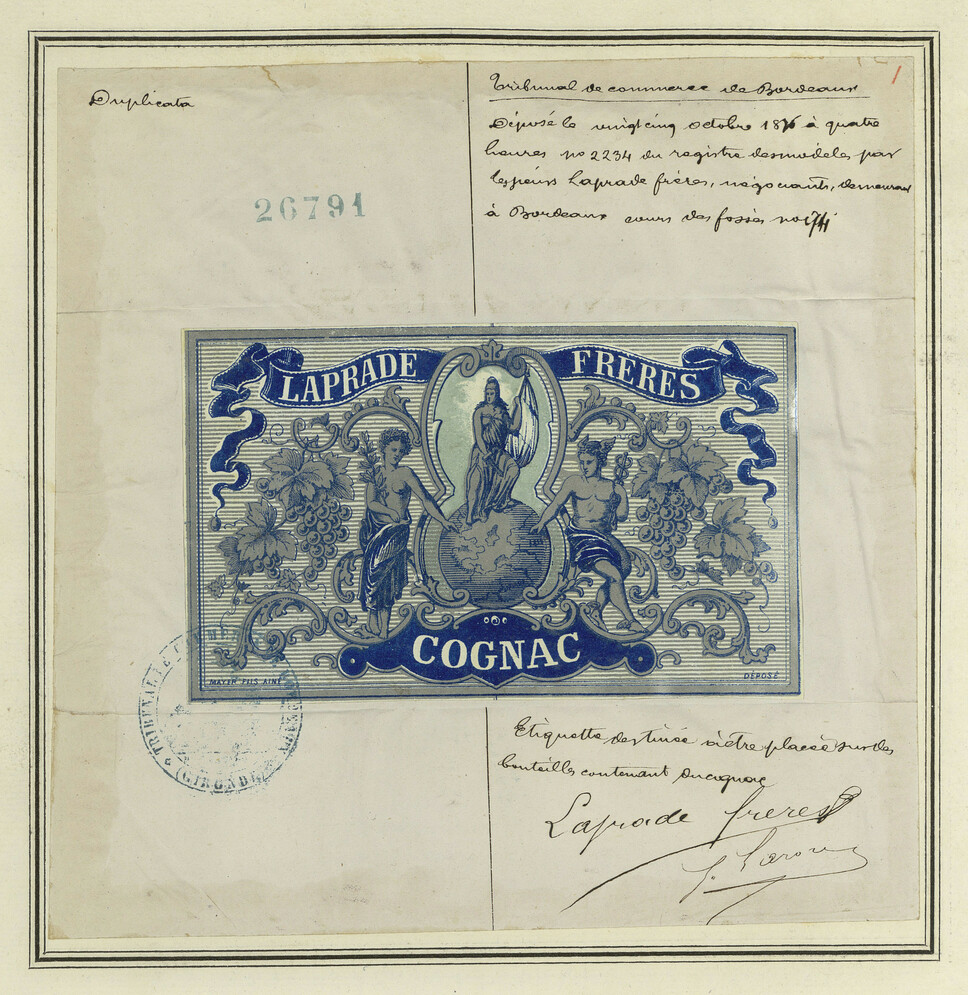 Duplicata
26791
Tribunal de commerce de Bordeaux
Déposé le vingt cinq octobre 1876 à quatre
heures no 2234 du registre des modèles par
les sieurs Laprade frères, négociants, demeurant
à Bordeaux cours des fossés no 74
LAPRADE FRERES
COGNAC
MAYER FILS AINÉ
DÉPOSÉ
TRIBUNAL DE COMMERCE
GIRONDE
Etiquette destinée à être placée sur des
bouteilles contenant du cognac
Laprade freres